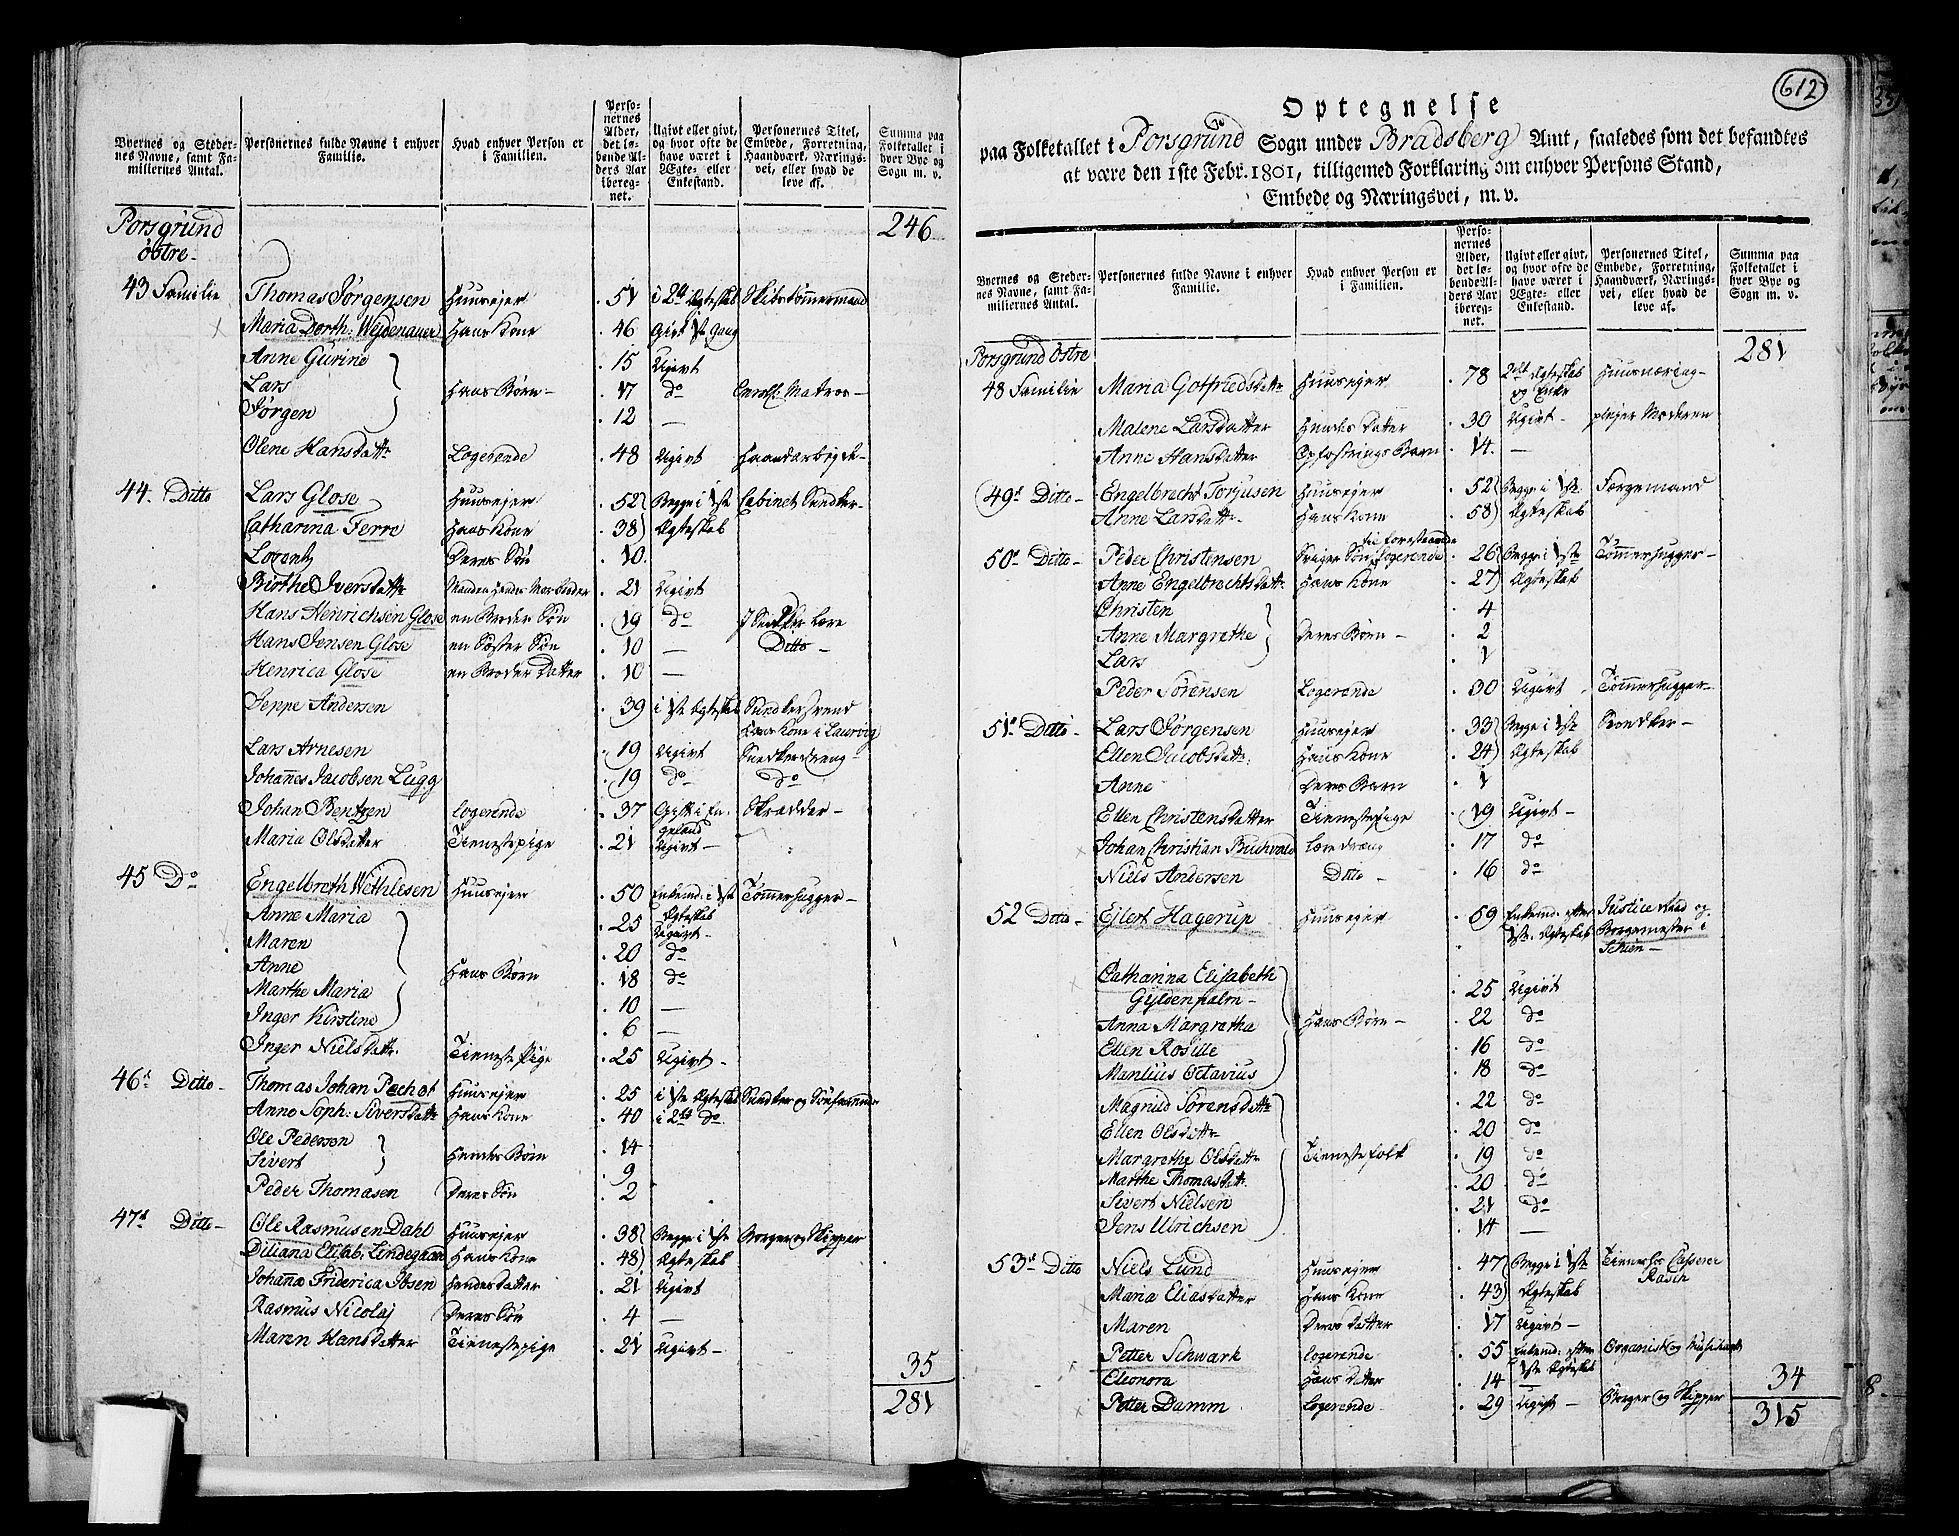 Byernes og Stedernes Navne, samt Familiernes Antal. | Personernes fulde Navne i enhver Familie. | Hvad enhver Person er i Familien. | Personernes Alder, det løbende Alders Aar iberegnet. | Ugivt eller givt, og hvor ofte de have været i Ægte- eller Enkestand. | Personernes Titel, Embede, Forretning, Haandværk, Næringsvei, eller hvad de leve af. | Summa paa Folketallet i hver Bye og Sogn m. v.
Porsgrund | 246
østre
43 Familie | Thomas Jørgensen | Huusejer | 51 | i 2det Ægteskab | Skibstømmermand
Maria Dorth: Wejdenauer | Hans Kone | 46 | Givt 1ste gang
Anne Gurine | 15 | Ugivt
Lars | Hans Børn | 17 | do | Enroll: Matros
Jørgen | 12 | —
Olene Hansdattr | Logerende | 48 | Ugivt | Haandarbejde
44. Ditto | Lars Glose | Huusejer | 52 | Begge i 1ste | Cabinet Snedker
Catharina Ferre | Hans Kone | 38 | Ægteskab
Lorentz | Deres Søn | 10
Birthe Iversdattr | 21 | Ugivt
Hans Henrichsen Glose | en Broder Søn | 19 | do | I Snedker Lære
Hans Jensen Glose | en Søster Søn | 10 | — | Ditto
Henrica Glose | en Broder Datter | 10 | —
Jeppe Andersen | 39 | i 1ste Ægteskab | Snedkersvend
Hans Kone i Laurvig
Lars Arnesen | 19 | Ugivt | Snedkerdreng
Johannes Jacobsen Lugg | 19 | do | do
Johan Bentzen | Logerende | 37 | Givt i En- | Skrædder
geland
Maria Olsdatter | Tienestepige | 21 | Ugivt
45 Do | Engelbreth Wethlesen | Huusejer | 50 | Enkemd: i 1ste | Tømmerhugger
Ægteskab
Anne Maria | 25 | Ugivt
Maren | 20 | do
Anne | Hans Børn | 18 | do
Marthe Maria | 10 | —
Inger Kirstine | 6 | —
Inger Nielsdattr. | Tieneste Pige | 25 | Ugivt
46de Ditto | Thomas Johan Pechot | Huusejer | 25 | i 1ste Ægteskab | Snedker og Søefarende
Anne Soph: Siversdattr | Hans Kone | 40 | i 2det do
Ole Pedersen | 14
Sivert | Hendes Børn | 9
Peder Thomasen | Deres Søn | 2
47de Ditto | Ole Rasmusen Dahl | Huusejer | 38 | Begge i 1ste | Borger og Skipper
Diliana Elisab: Lindegaard | Hans Kone | 48 | Ægteskab
Johana Friderica Ibsen | Hendes Datter | 21 | Ugivt
Rasmus Nicolaj | Deres Søn | 4 | —
Maren Hansdatter | Tienestepige | 21 | Ugivt
35
281
612
Optegnelse
paa Folketallet i Porsgrund Sogn under Bradsberg Amt, saaledes som det befandtes
at være den 1ste Febr. 1801, tilligemed Forklaring om enhver Persons Stand,
Embede og Næringsvei, m. v.
Byernes og Stedernes Navne, samt Familiernes Antal. | Personernes fulde Navne i enhver Familie. | Hvad enhver Person er i Familien. | Personernes Alder, det løbende Alders Aar iberegnet. | Ugivt eller givt, og hvor ofte de have været i Ægte- eller Enkestand. | Personernes Titel, Embede, Forretning, Haandværk, Næringsvei, eller hvad de leve af. | Summa paa Folketallet i hver Bye og Sogn m. v.
Porsgrund østre | 281
48 Familie | Maria Gotfriedsdattr | Huusejer | 78 | 2det Ægteskab | Huusnæring
og Enke
Malene Larsdatter | Hendes Datter | 30 | Ugivt | plejer Moderen
Anne Hansdatter | Opfostrings Barn | 14. | —
49de Ditto | Engelbrecht Torjusen | Huusejer | 52 | Begge i 1ste | Færgemand
Anne Larsdattr | Hans Kone | 58 | Ægteskab
til forestaaende
50de Ditto | Peder Christensen | Sviger Søn Logerende | 26 | Begge i 1ste | Tømmerhugger
Anne Engelbrechtsdattr | Hans Kone | 27 | Ægteskab
Christen | 4
Anne Margrethe | Deres Børn | 2
Lars | 1
Peder Sørensen | Logerende | 30 | Ugivt | Tømmerhugger
51de Ditto | Lars Jørgensen | Huusejer | 33 | Begge i 1ste | Snedker
Ellen Jacobsdattr: | Hans Kone | 24 | Ægteskab
Anne | Deres Barn | 1
Ellen Christensdatter | Tienestepige | 19 | Ugivt
Johan Christian Buchvald | Læredreng | 17 | do
Niels Andersen | Ditto | 16 | do
52 Ditto | Ejlert Hagerup | Huusejer | 59 | Enkemd: efter | Justice Raad og
1ste Ægteskab | Borgemester i
Schien
Catharina Elisabeth
Gyldenpalm | 25 | Ugivt
Anna Margretha | Hans Børn | 22 | do
Ellen Rosille | 16 | do
Manlius Octavius | 18 | do
Magnild Sørensdattr | 22 | do
Ellen Olsdattr | 20 | do
Margrethe Olsdattr | Tienestefolk | 19 | do
Marthe Thomasdattr. | 20 | do
Sivert Nielsen | 21 | do
Jens Ulrichsen | 14 | —
53de Ditto | Niels Lund | Huusejer | 47 | Begge i 1ste | Tiener hos Casserer
Rasch
Maria Eliasdatter | Hans Kone | 43 | Ægteskab
Maren | Deres Datter | 17 | Ugivt
Petter Schwark | Logerende | 55 | Enkemd: efter | Organist og Musicant
1ste Ægteskab
Eleonora | Hans Datter | 14 | —
Petter Damm | Logerende | 29 | Ugivt | Borger og Skipper
34
315